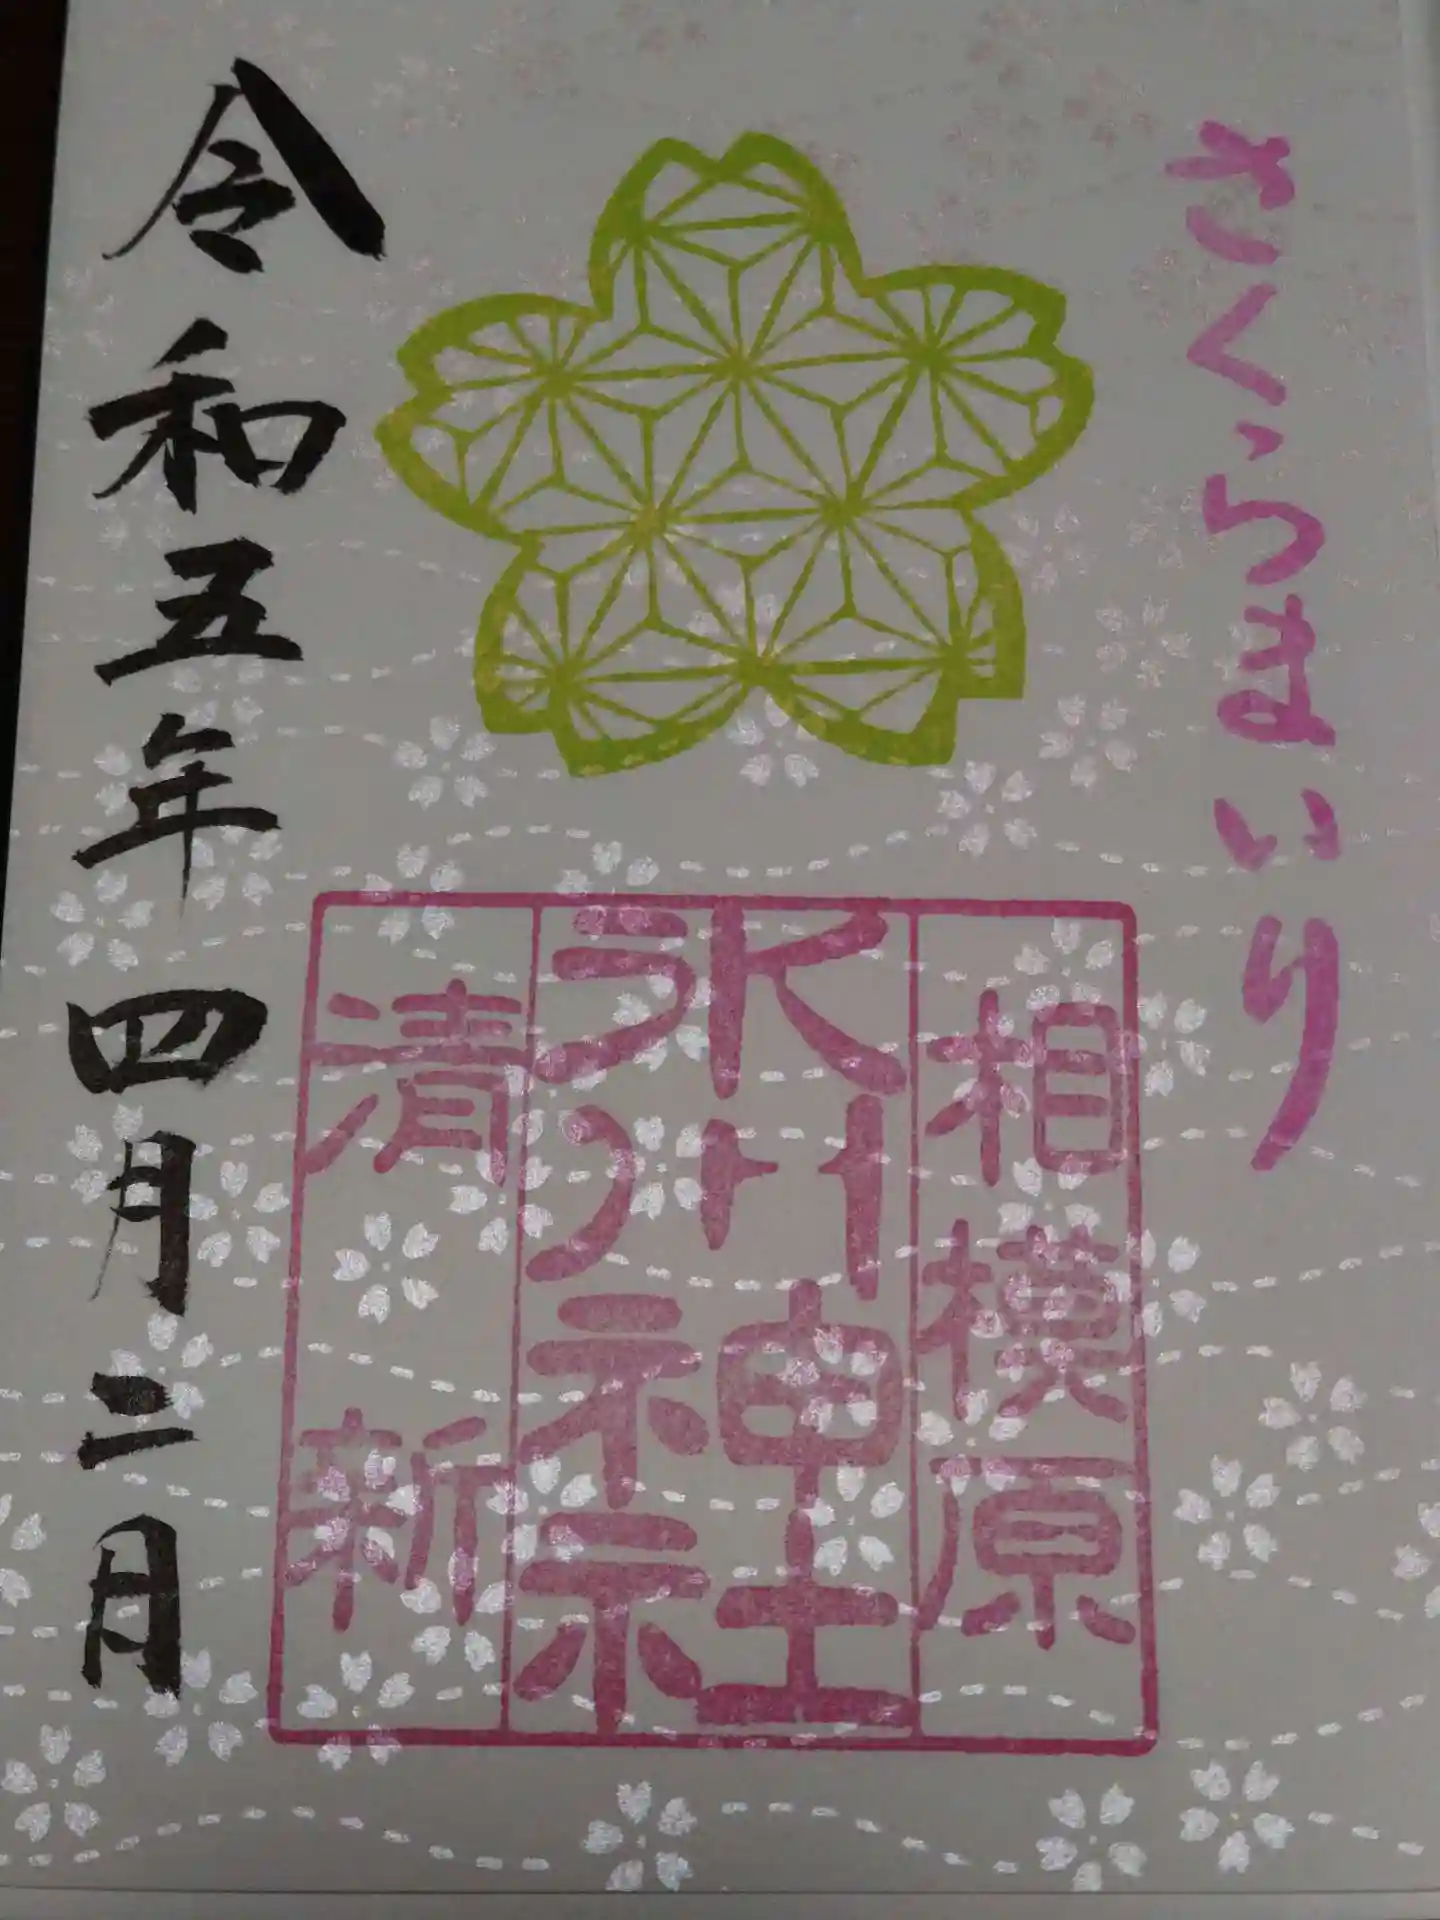 さくらまいり
相模原
氷川神社
清新
令和五年四月二日